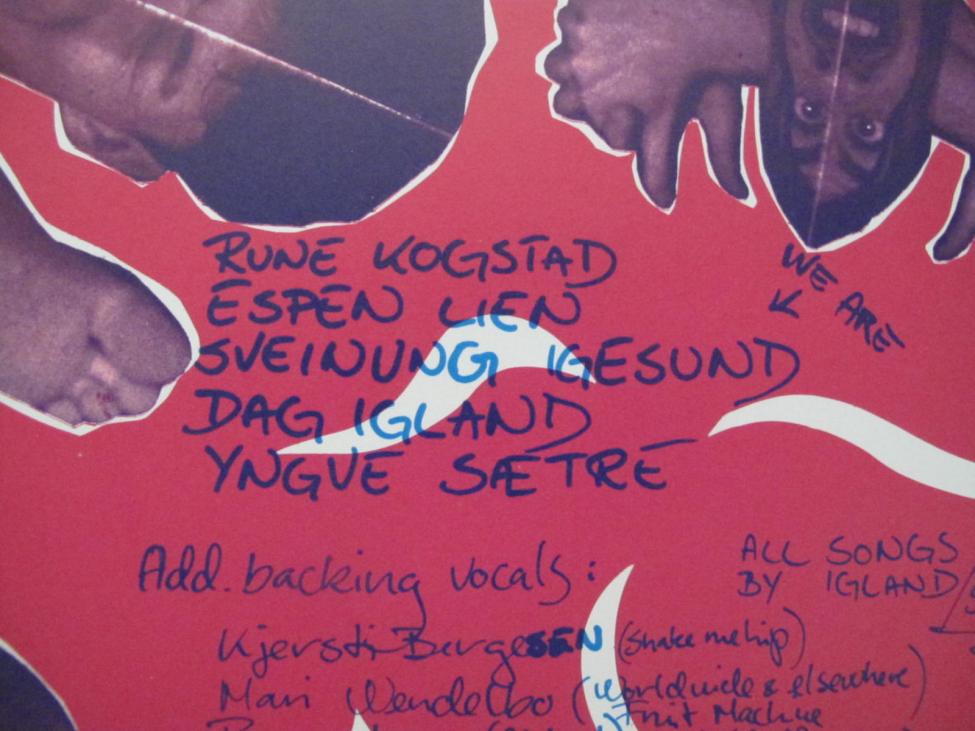 WE ARE
RUNE KOGSTAD
ESPEN LIEN
SVEINUNG IGESUND
DAG IGLAND
YNGVE SÆTRE
ALL SONGS
BY IGLAND/
Add. backing vocals:
Kjersti BergeSEN (shake me hip)
Mari Wendelbo (Worldwide & elsewhere)
Fruit Machine